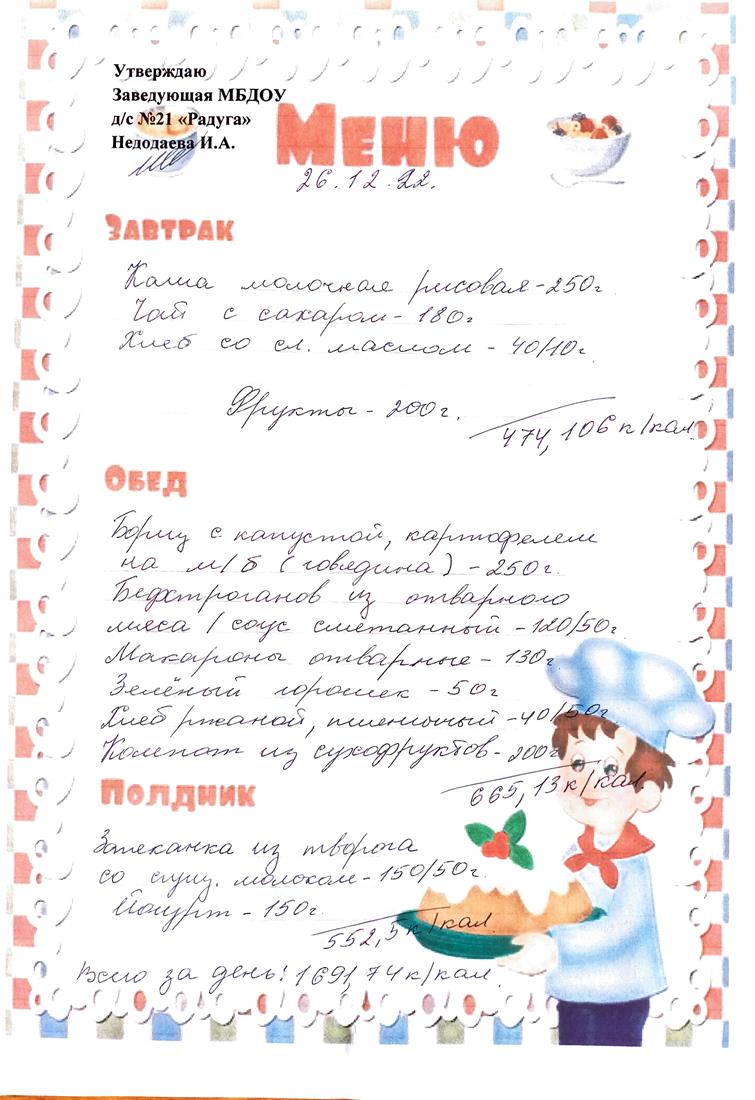 Утверждаю
Заведующая МБДОУ
д/с №21 «Радуга»
Недодаева И.А.
Меню
26.12.22.
Завтрак
Каша молочная рисовая - 250г
Чай с сахаром - 180г
Хлеб со сл. маслом - 40/10г.
Фрукты - 200г.
474,106 к/кал.
Обед
Борщ с капустой, картофелем
на м/б (говядина) - 250г.
Бефстроганов из отварного
мяса / соус сметанный - 120/50г.
Макароны отварные - 130г.
Зелёный горошек - 50г
Хлеб ржаной, пшеничный - 40/50г.
Компот из сухофруктов - 200г
665,13 к/кал.
Полдник
Запеканка из творога
со сгущ. молоком - 150/50г.
Йогурт - 150г.
552,5 к/кал.
Всего за день: 1691,74 к/кал.